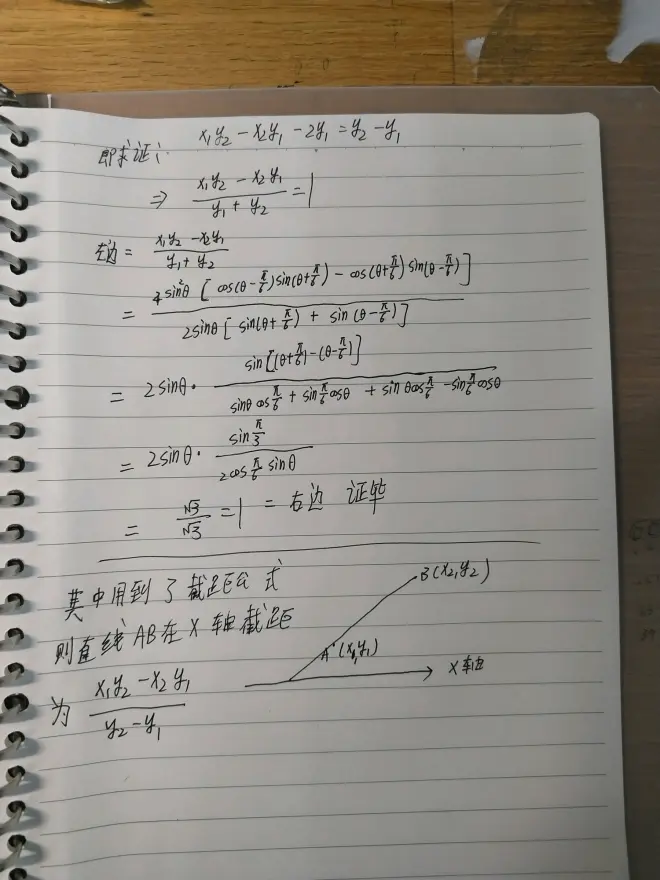 即求证: x₁y₂ - x₂y₁ - 2y₁ = y₂ - y₁
⇒ \frac{x₁y₂ - x₂y₁}{y₁ + y₂} = 1
左边 = \frac{x₁y₂ - x₂y₁}{y₁ + y₂}
= \frac{4sin²θ [cos(θ-\frac{π}{6})sin(θ+\frac{π}{6}) - cos(θ+\frac{π}{6})sin(θ-\frac{π}{6})]}{2sinθ[sin(θ+\frac{π}{6}) + sin(θ-\frac{π}{6})]}
= 2sinθ · \frac{sin[(θ+\frac{π}{6})-(θ-\frac{π}{6})]}{sinθcos\frac{π}{6} + sin\frac{π}{6}cosθ + sinθcos\frac{π}{6} - sin\frac{π}{6}cosθ}
= 2sinθ · \frac{sin\frac{π}{3}}{2cos\frac{π}{6}sinθ}
= \frac{√3}{√3} = 1 = 右边 证毕
其中用到了截距公式
则直线AB在X轴截距
为 \frac{x₁y₂ - x₂y₁}{y₂ - y₁}
B(x₂,y₂)
A(x₁,y₁)
X轴